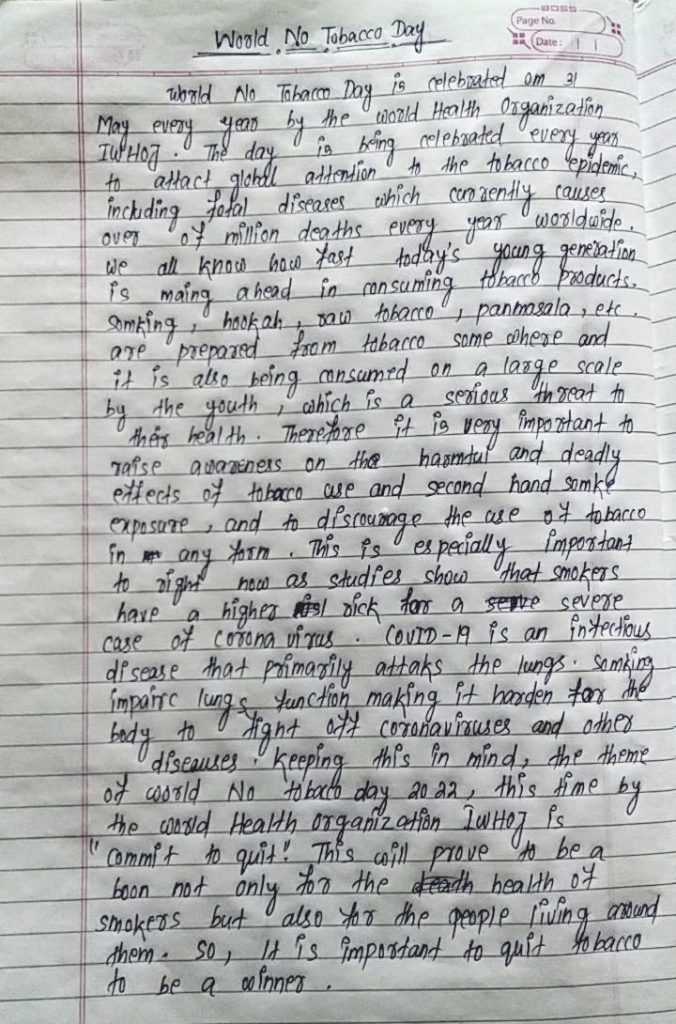 BOSS
Page No.
Date:
World No Tobacco Day
World No Tobacco Day is celebrated om 31
May every year by the world Health Organization
IWHOJ. The day is being celebrated every year
to attact global attention to the tobacco epidemic,
including fotal diseases which currently causes
over of million deaths every year worldwide.
we all know how fast today's young generation
is maing ahead in consuming tobacco products.
Somking, hookah, raw tobacco, panmasala, etc.
are prepared from tobacco some where and
it is also being consumed on a large scale
by the youth, which is a serious threat to
their health. Therefore it is very important to
raise awareness on the harmful and deadly
effects of tobacco use and second hand somke
exposure, and to discourage the use of tobacco
in any form. This is especially important
to right now as studies show that smokers
have a higher rick for a severe
case of corona virus. COVID-19 is an infectious
disease that primarily attaks the lungs. Somking
impairc lungs function making it harden for the
body to fight off coronaviruses and other
diseauses. Keeping this in mind, the theme
of world No tobacco day 2022, this time by
the world Health organization IWHOJ is
"commit to quit!" This will prove to be a
boon not only for the health of
smokers but also for the people living around
them. So, It is important to quit tobacco
to be a winner.